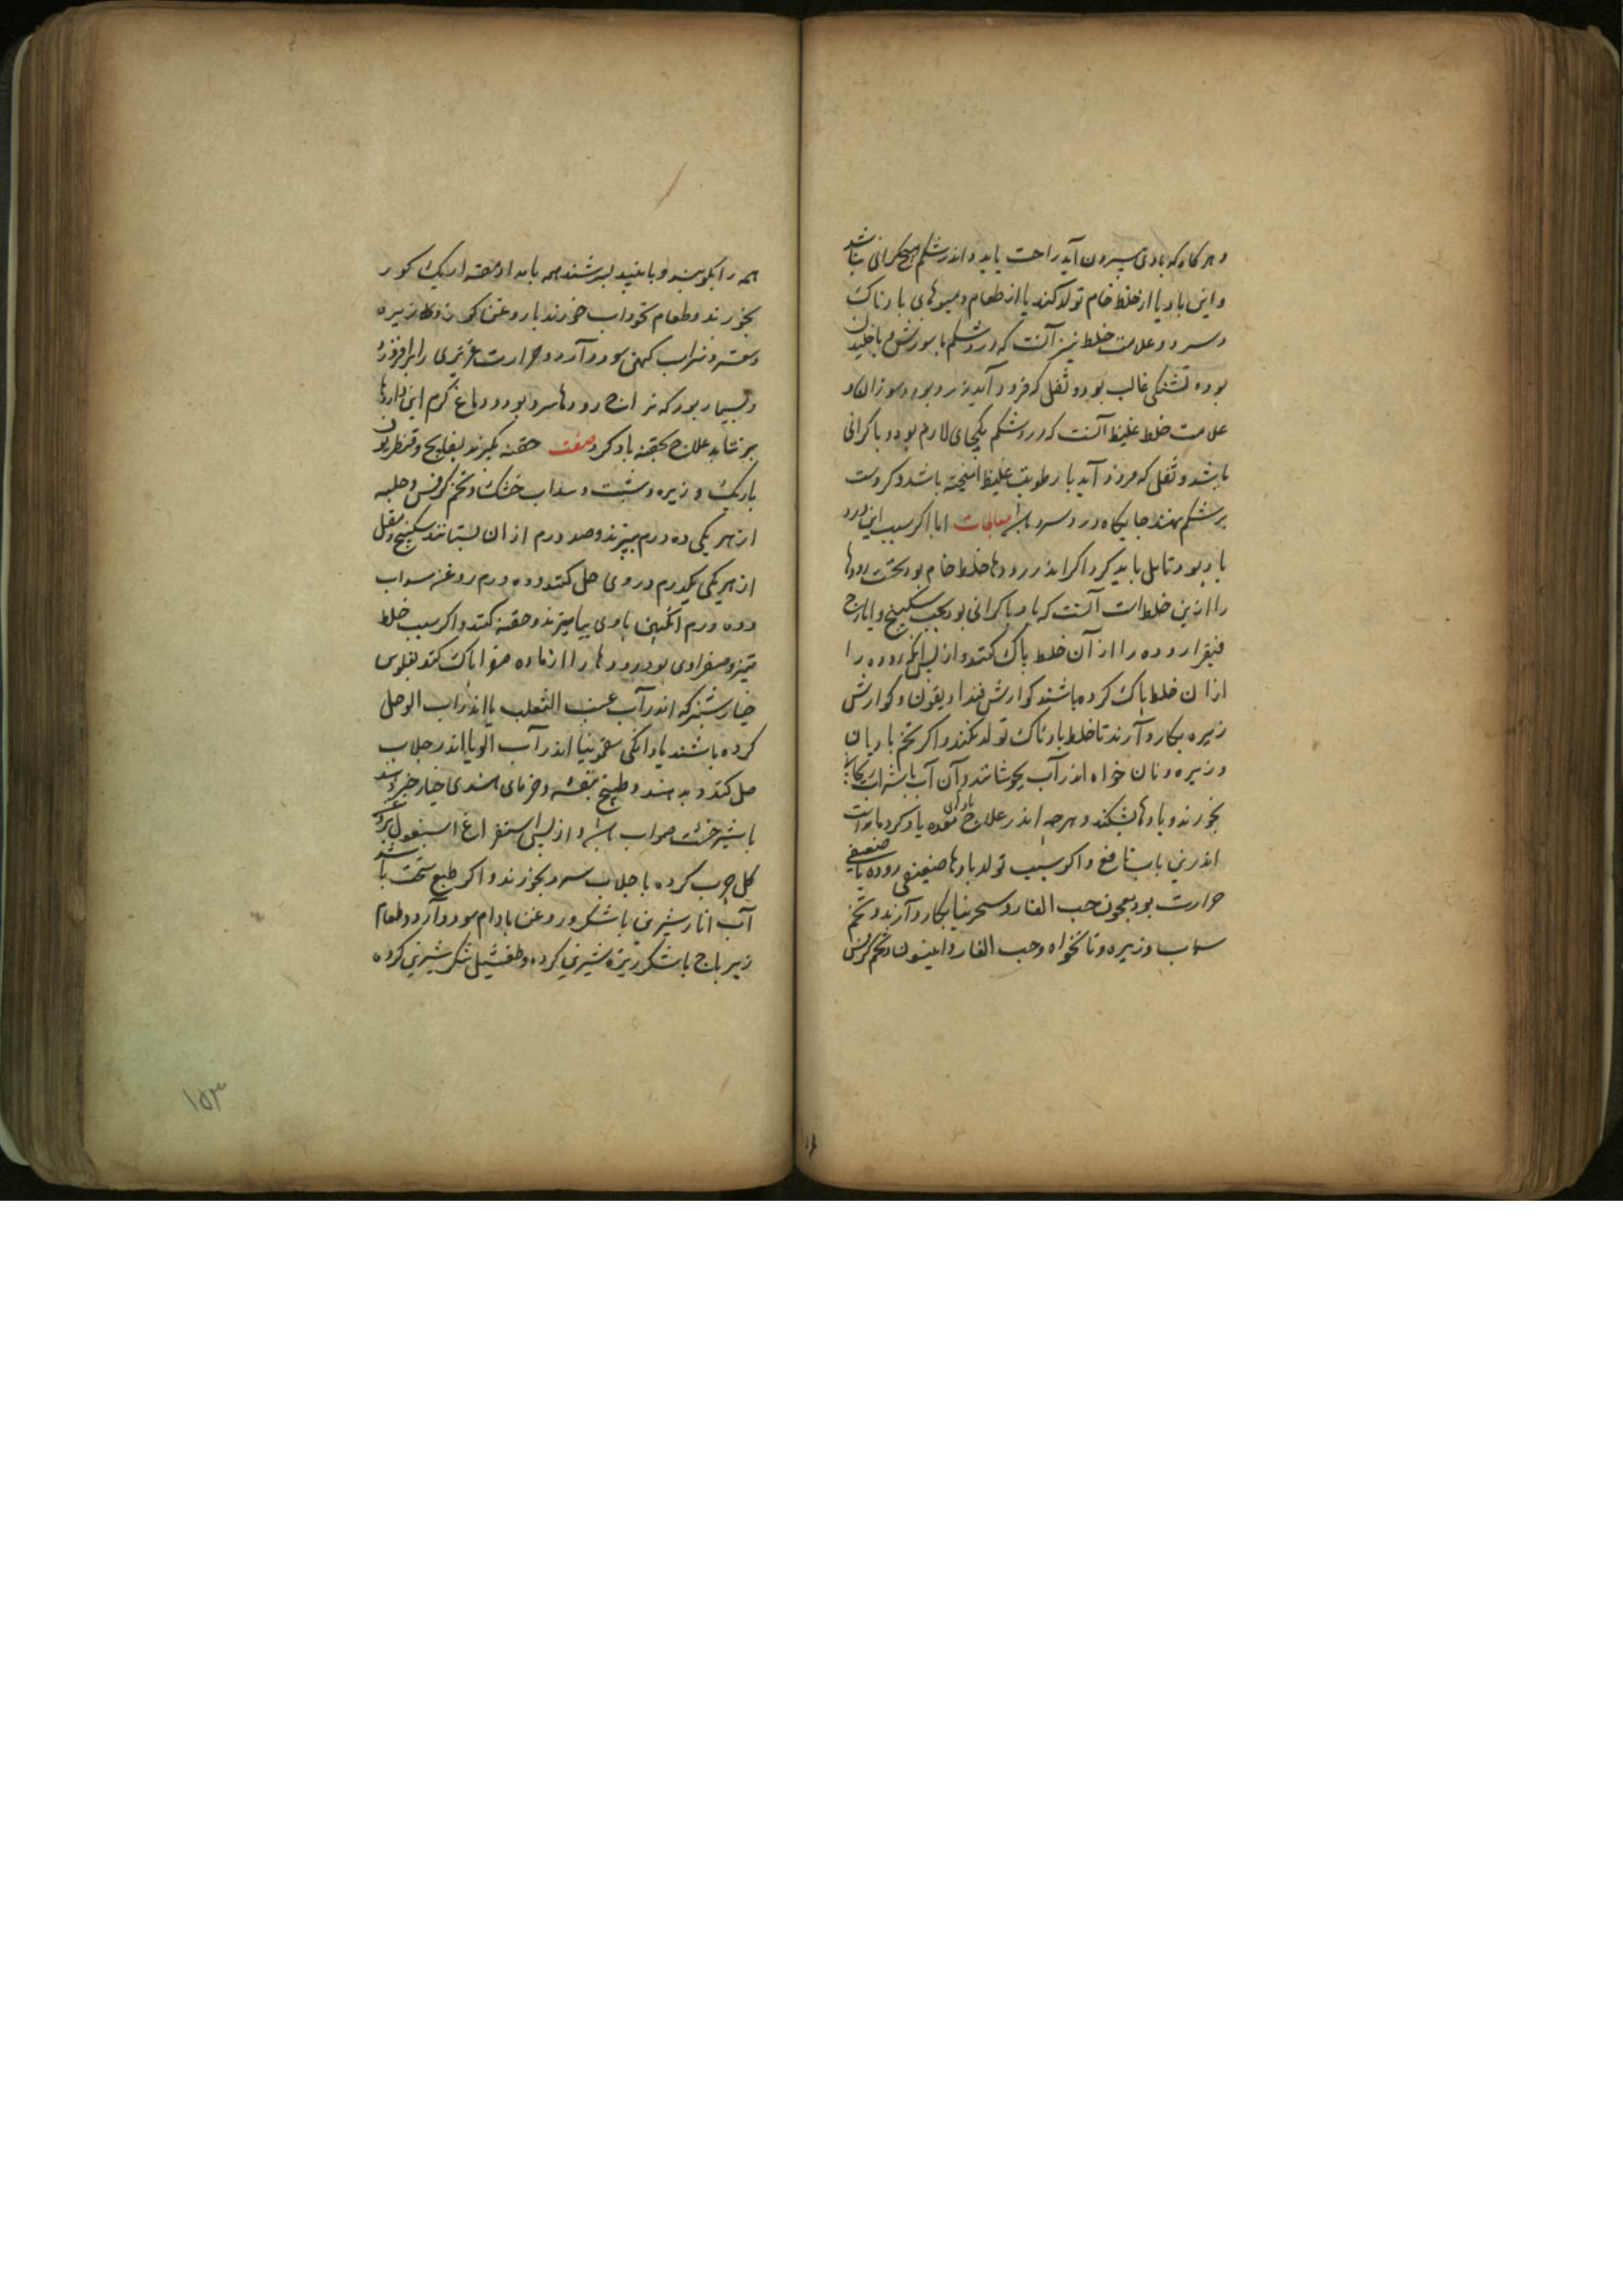 و هر گاه که بادی بیرون آید راحت یابد و اندر شکم هیچ گرانی نباشد
و این باد یا از خلط خام تولد کند یا از طعام و میوهای بادناک
و سرد و علامت خلط تیز آنست که درد شکم با سوزش و با خلیدن
بود و تشنگی غالب بود و ثفل که فرود آید زرد بود و سوزان و
علامت خلط غلیظ آنست که درد شکم یکجای لازم بود و با گرانی
باشد و ثفل که فرود آید با رطوبت غلیظ امیخته باشد و کر دست
بر شکم نهند جایگاه درد سرد باشد معالجات اما اکر سبب این درد
باد بود تامل باید کرد اکر اندر رودها خلط خام بود نخست رودها
را از این خلط آنست که باد با کرانی بود بحب سکبینج و ایارج
فیقرا روده را از آن خلط پاک کنند و از پس انکه روده را
ازان خلط پاک کرده باشند کوارش فندادیقون و کوارش
زیره بکار دارند تا خلط بادناک تولد نکند و اکر تخم بادیان
و زیره و نان خواه اندر آب بجوشانند و آن آب با شراب
بخورند و بادها بشکند و هرچه اندر علاج بادهای معده یاد کرده
اندرین باب نافع و اکر سبب تولد بادها ضعیفی روده یا ضعیفی
حرارت بود معجون حب الغار و سجزینا بکار دارند و تخم
سداب و زیره و نانخواه و حب الغار و انیسون و تخم کرفس
همه را بکوبند و بانبید بسرشند همه بامداد مقدار یک کوز
بخورند و طعام نخوداب خورند با روغن کوز و زیره
و سعتر و شراب کهن سود دارد و حرارت غریزی را برافروزد
و بسیار بود که مزاج رودها سرد بود و دماغ گرم این داروها
بر نتابد علاج بحقنه باید کرد صفت حقنه بگیرند بسفایج و قنطریون
باریک و زیره و شبت و سداب خشک و تخم کرفس و حلبه
از هر یکی ده درم بپزند و صد درم از ان بستانند سکبینج و مقل
از هر یکی یکدرم در وی حل کنند و ده درم روغن سداب
و ده درم انگبین با وی بیامیزند و حقنه کنند و اکر سبب خلط
تیز و صفراوی بود رودها را از ماده صفرا پاک کنند بفلوس
خیارشنبر که اندر آب عنب الثعلب یا اندر اب الو حل
کرده باشند یا دانگی سقمونیا اندر آب الو یا اندر جلاب
حل کنند و بدهند و طبیخ بنفشه و خرمای هندی خیارشنبر
با شیرخشت صواب باشد و از پس استفراغ اسبغول بروغن
گل چرب کرده با جلاب سرد بخورند و اکر طبع سخت باشد
آب انار شیرین با شکر و روغن بادام سود دارد و طعام
زیرباج با شکر ریزه شیرین کرده و طفشیل بشکر شیرین کرده
۱۵۳